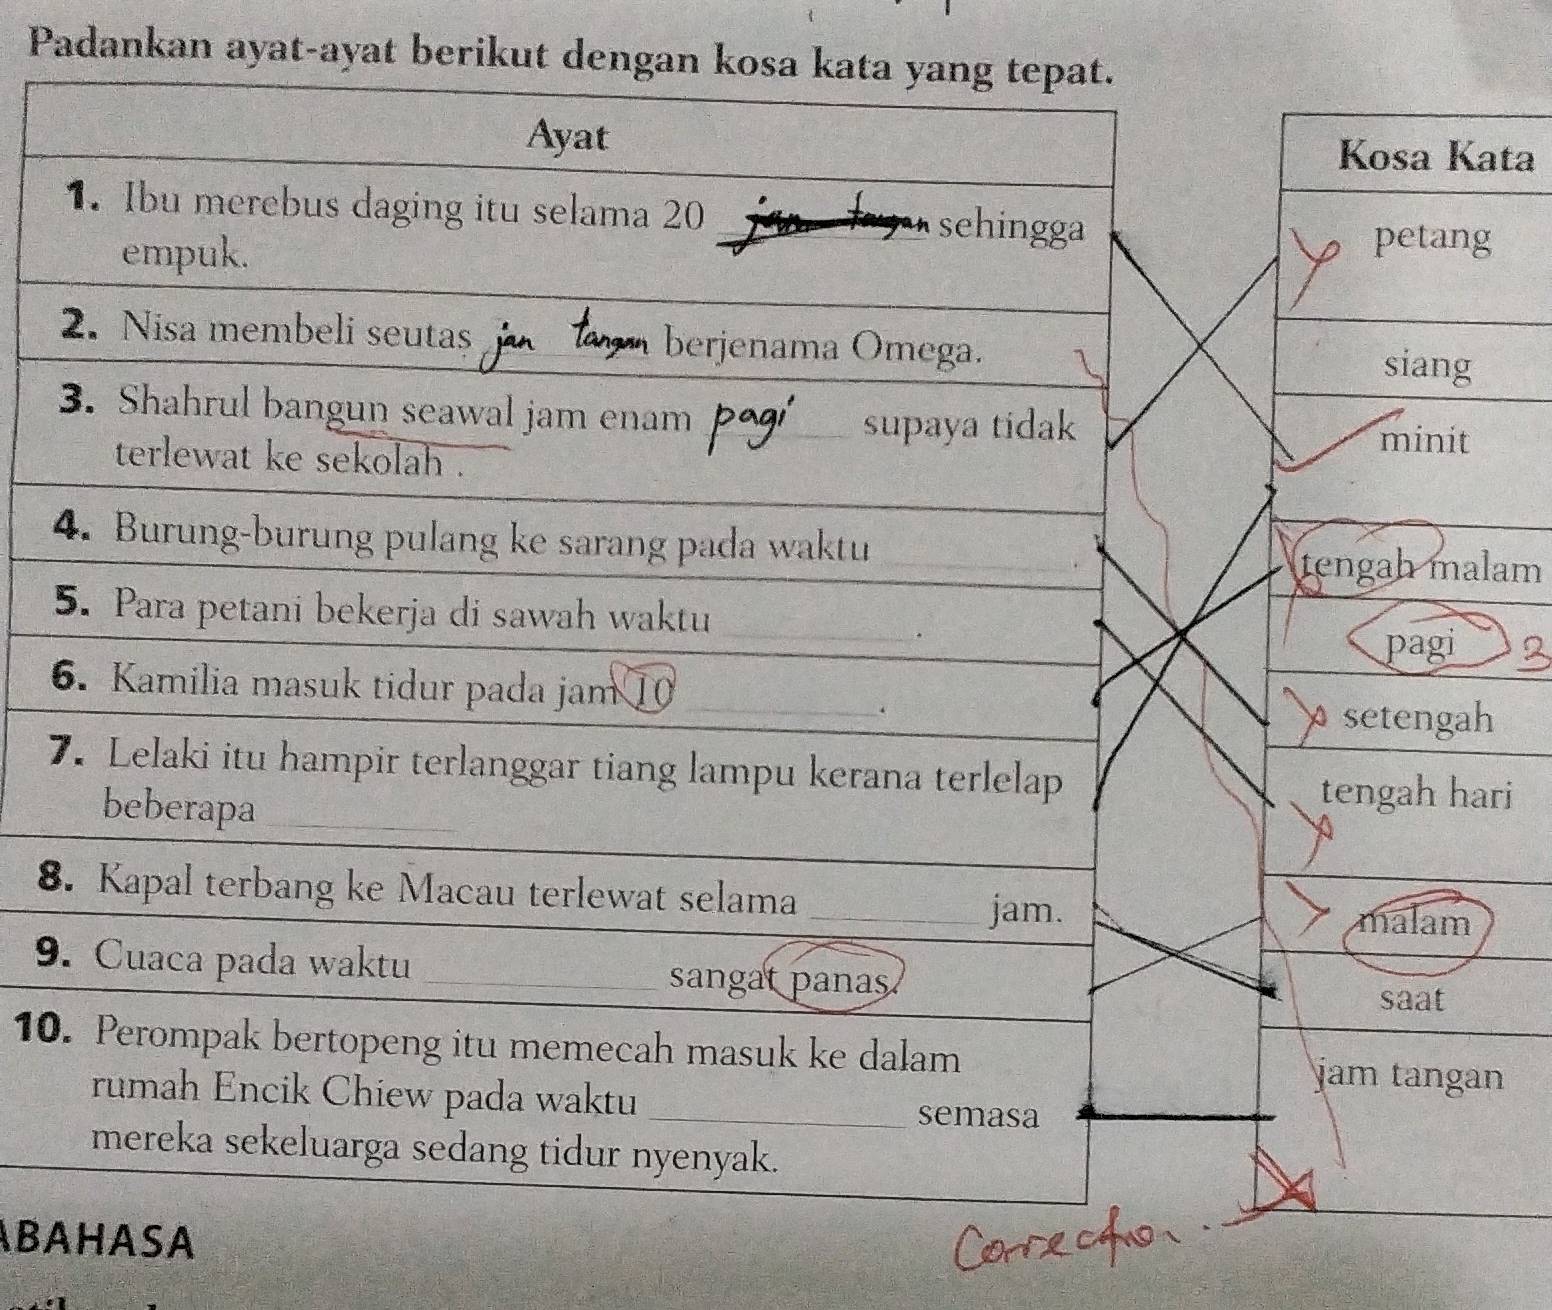 Padankan ayat-ayat berikut dengan kosa kata yang tepat.
Ayat
1. Ibu merebus daging itu selama 20 jam tangan sehingga
empuk.
2. Nisa membeli seutas jan tangan berjenama Omega.
3. Shahrul bangun seawal jam enam pagi supaya tidak
terlewat ke sekolah .
4. Burung-burung pulang ke sarang pada waktu ________.
5. Para petani bekerja di sawah waktu ________.
6. Kamilia masuk tidur pada jam 10 ________.
7. Lelaki itu hampir terlanggar tiang lampu kerana terlelap
beberapa ________
8. Kapal terbang ke Macau terlewat selama ________ jam.
9. Cuaca pada waktu ________ sangat panas.
10. Perompak bertopeng itu memecah masuk ke dalam
rumah Encik Chiew pada waktu ________ semasa
mereka sekeluarga sedang tidur nyenyak.
Kosa Kata
petang
siang
minit
tengah malam
pagi 3
setengah
tengah hari
malam
saat
jam tangan
Correction
ABAHASA